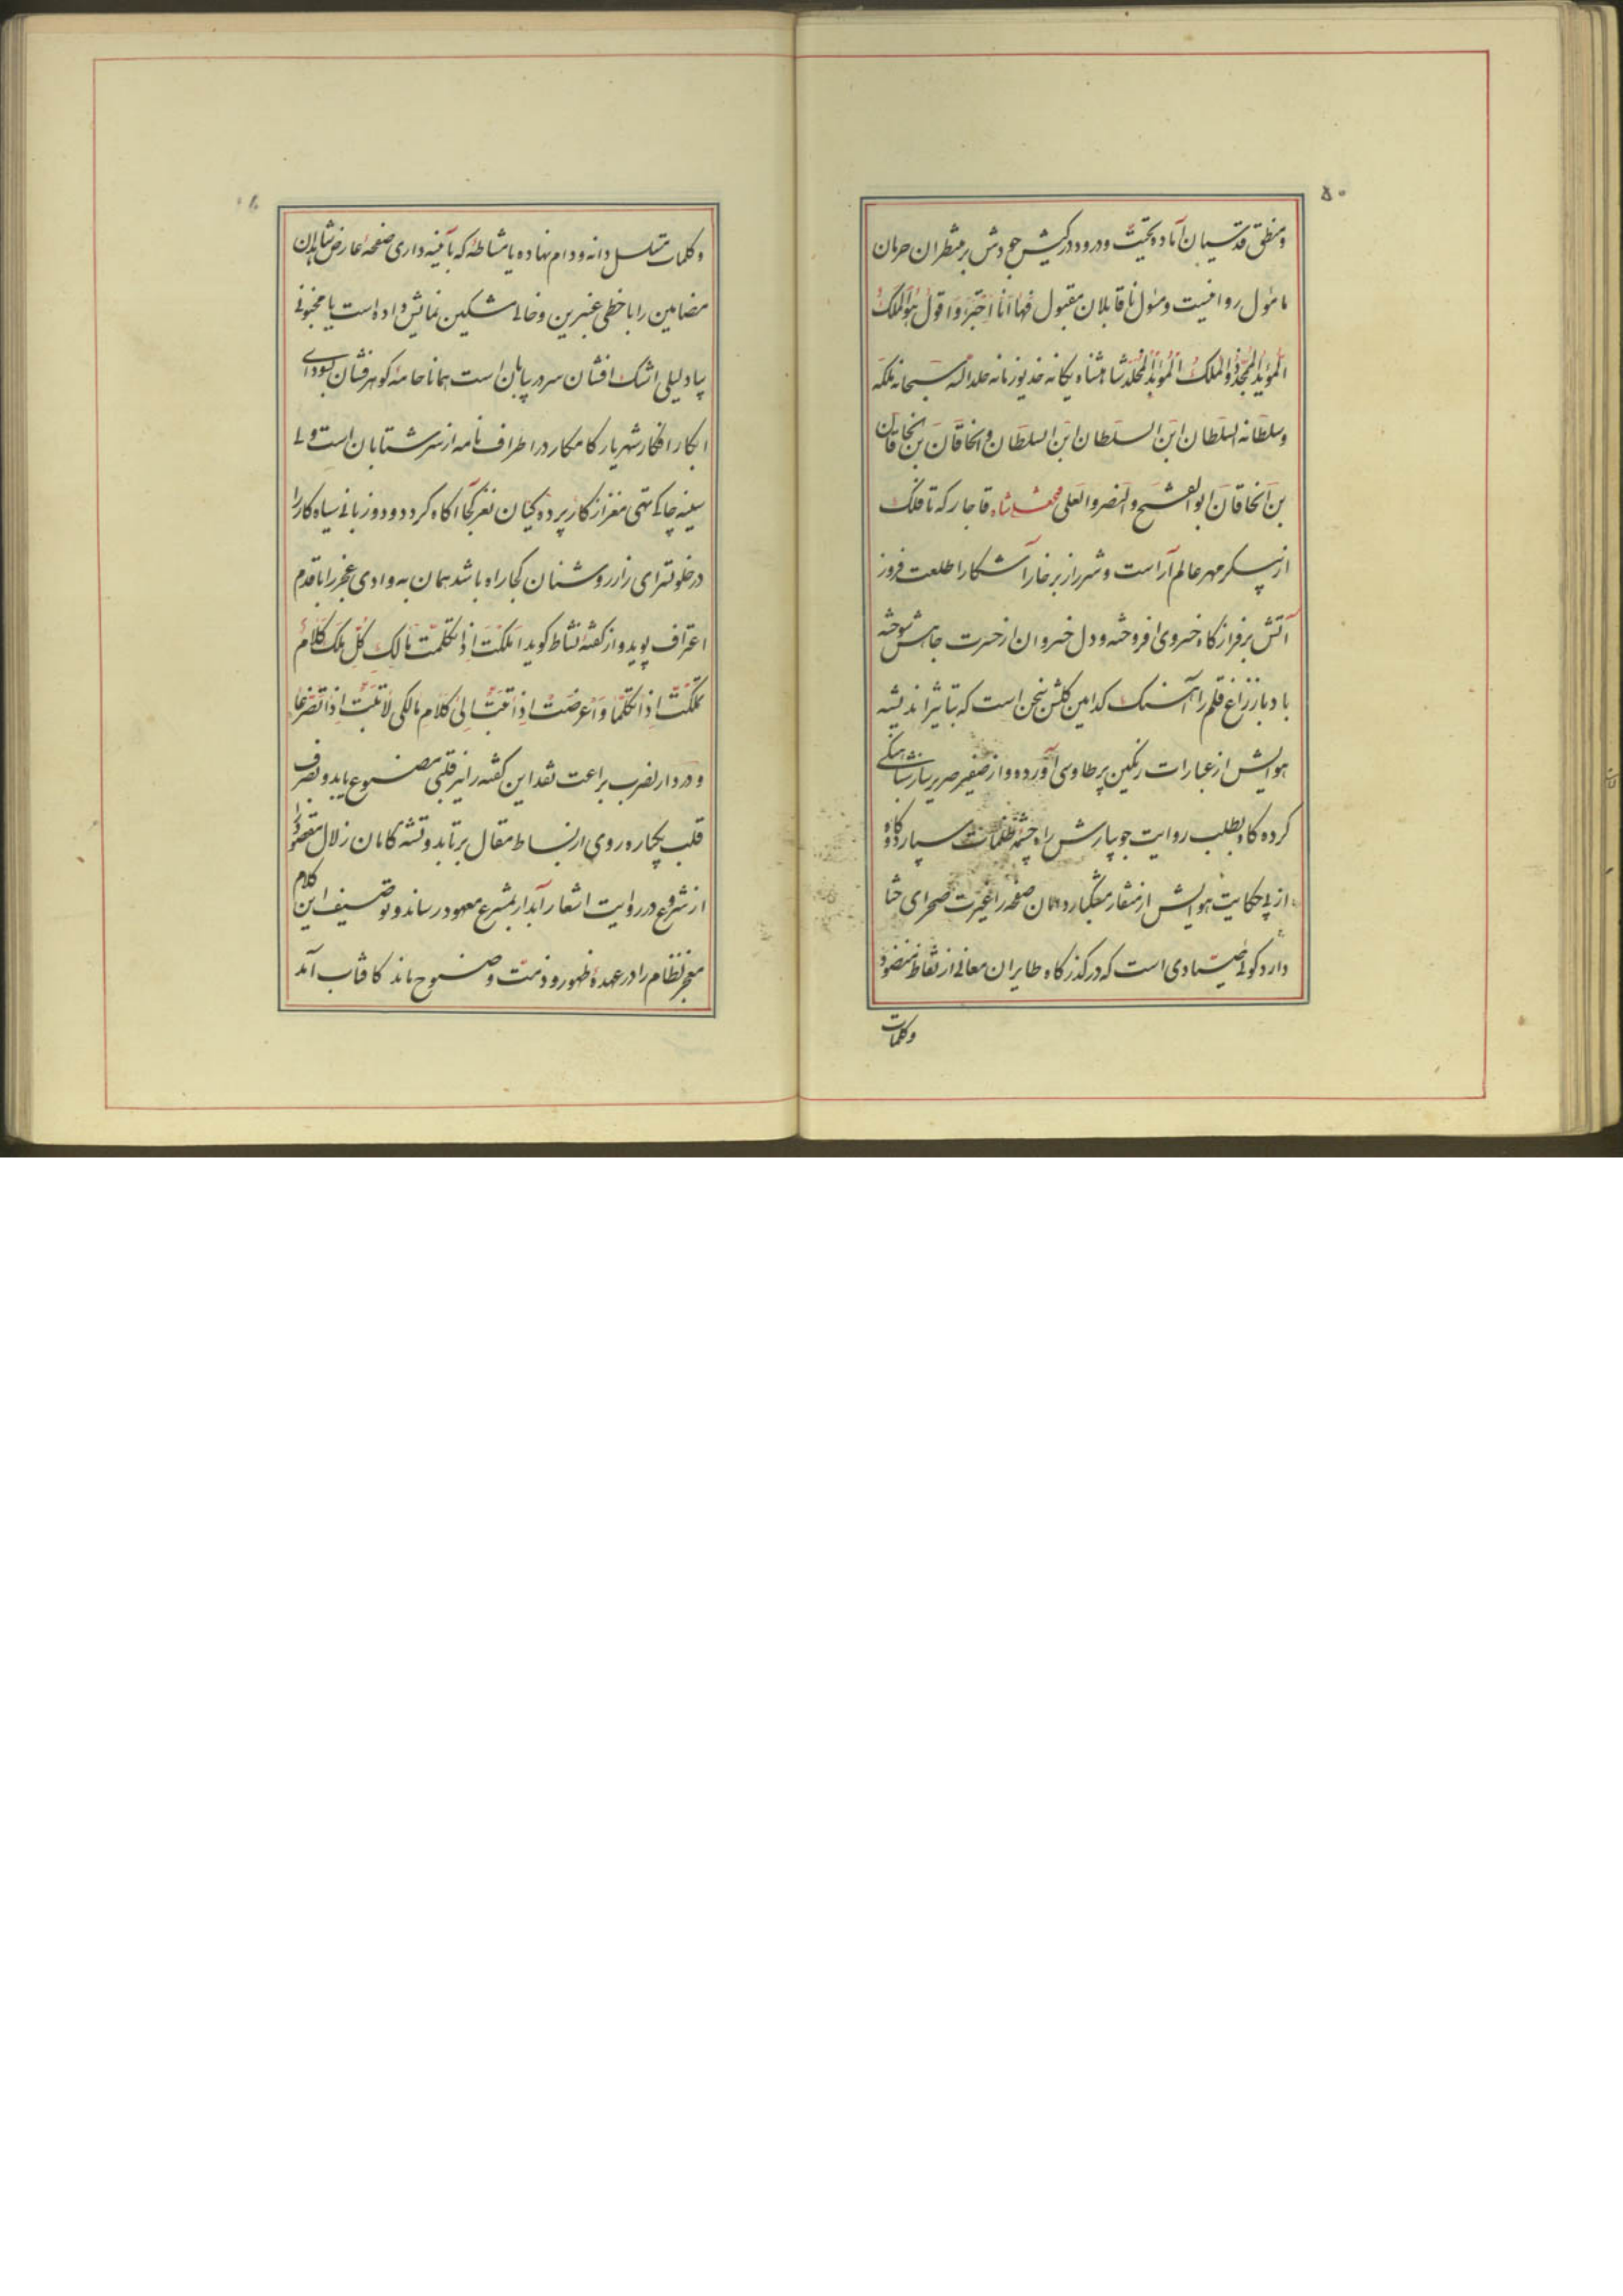 ۵۰
و منطق قدسیان آماده تحیت و درود در کیش جودش بر منتظران حرمان
مامول روا نیست و مسول ناقابلان مقبول فها انا اجترء و اقول هو الملک
المؤید الممجد و الملک المؤبد المخلد شاهنشاه یکانه خدیو زمانه خلد الله سبحانه ملکه
و سلطانه السلطان ابن السلطان ابن السلطان و الخاقان بن الخاقان
بن الخاقان ابو الفتح و النصر و العلی شاه قاجار که تا فلک
از پیکر مهر عالم آراست و شرر از بر خارا آشکارا طلعت فروز
آتش بر فراز کاه خسروی افروخته و دل خسروان از حسرت جاهش سوخته
باد باز زاغ قلم را آهنک کدامین کلشن سخن است که بتاثیر اندیشه
هوایش از عبارات رنکین پر طاوسی آورده و از صفیر صریر ساز
کرده کاه بطلب روایت جویبارش راه چشمه ظلمات سپارد و کاه
از پی حکایت هوایش از منقار مشکبار دامان صفحه را غیرت صحرای ختا
دارد کوئی صیادی است که در کذرکاه طایران معانی از نقاط منضود
وکلمات
و کلمات متسلسل دانه و دام نهاده یا مشاطهٔ که بآئینه داری صفحهٔ عارض شاهدان
مضامین را با خطی عنبرین و خالی مشکین نمایش داده است یا مجنونی
بیاد لیلی اشک افشان سر در بیابان است همانا خامهٔ کوهرفشان بسودای
ابکار افکار شهریار کامکار در اطراف نامه از سر شتابان است ولی
سینه چاکی تهی مغز از کار پرده کیان نغز کجا آکاه کردد و دو زبانی سیاه کار را
در خلوتسرای راز روشنان کجا راه باشد همان به وادی عجز را با قدم
اعتراف پوید و از کفته نشاط کوید املکت اذ تکلمت مالک کل ملک کلام
تملکت اذ اتکلما و اعرضت اذ اقبت الی کلام مالکی لاتبت اذا تضرعا
و در دار لضرب براعت نقد این کفته را نیز قلبی مصنوع یابد و نصرف
قلب بیچاره روی از بساط مقال برتابد و تشنه کامان زلال مقصود را
از شروع در روایت اشعار آبدار بمشرع معهود رساند و توصیف این کلام
معجز نظام را در عهدهٔ ظهور و ذمت وضوح ماند کافتاب آمد